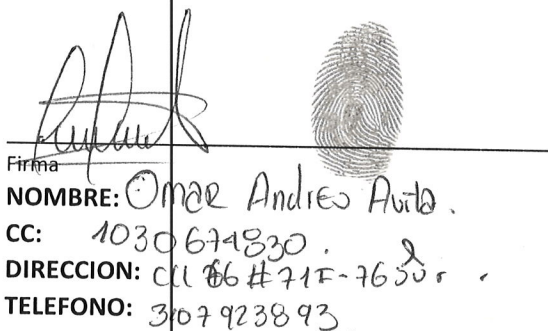 Firma
NOMBRE: Omar Andres Avila.
CC: 1030674830.
DIRECCION: Cll 66 #71F-76 Sur.
TELEFONO: 3107923893